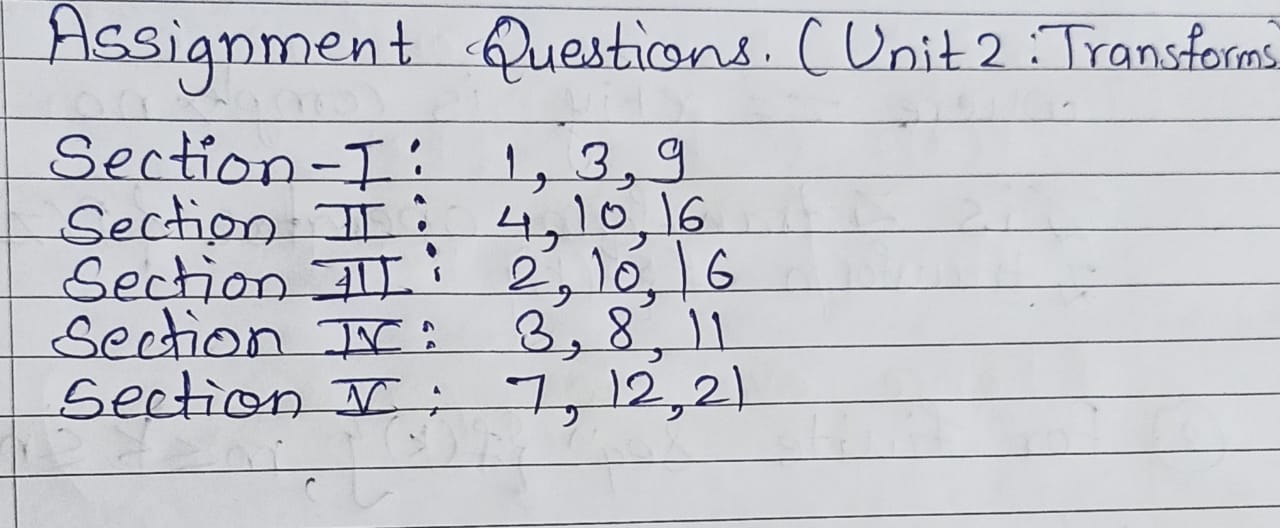 Assignment Questions. (Unit 2 : Transforms)
Section-I : 1, 3, 9
Section II : 4, 10, 16
Section III : 2, 10, 16
Section IV : 3, 8, 11
Section V : 7, 12, 21